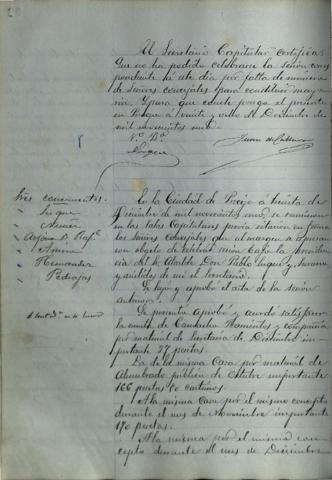 El Secretario Capitular certifica
Que no ha podido celebrarse la sesión corres
pondiente a este día por falta de número
de Señores concejales para constituir mayo
ría. Y para que conste pongo el presente
en Priego a veinte y ocho de Diciembre de
mil novecientos uno.
V.º B.º
Luque
Sres concurrentes
Luque
Serrano
Amores
Hernandez
Pedrajas
En la Ciudad de Priego a treinta de
Diciembre de mil novecientos uno, se reunieron
en las Salas Capitulares previa citación en forma
los Señores Concejales que al margen se expresan
con objeto de celebrar sesión bajo la presiden
cia del Sr. Alcalde Don Pablo Luque y Serrano
y asistidos de mi el Secretario.
Se leyó y aprobó el acta de la sesión
anterior.
Se presentó aprobó y acordó satisfacer
la cuenta de Camacho Hermanos y compañía
por material de Secretaria de Diciembre im-
portante 27 pesetas.
La de la misma Casa por material de
Alumbrado público de Octubre importante
166 pesetas 50 centimos
A la misma Casa por el mismo concepto
durante el mes de Noviembre importante
170 pesetas.
A la misma por el mismo con-
cepto durante el mes de Diciembre